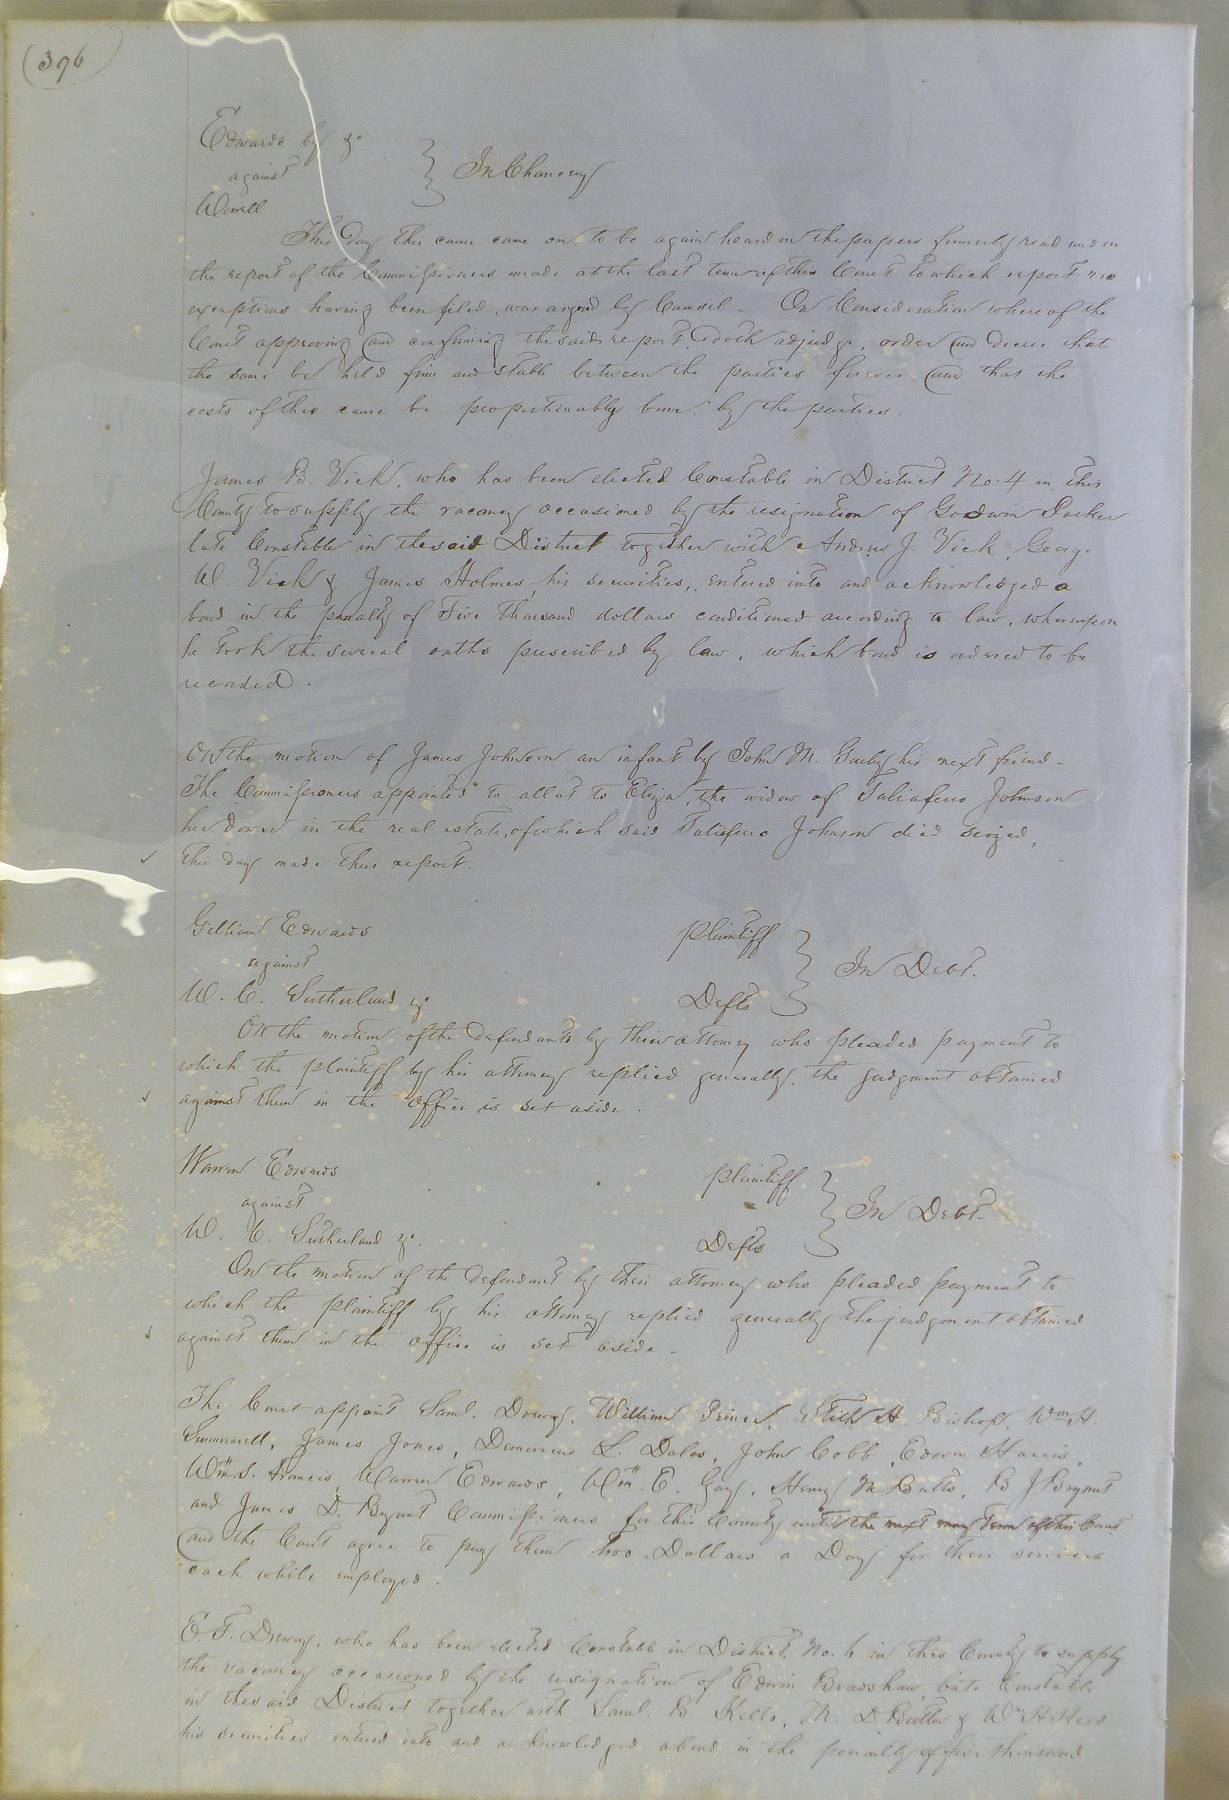 (396
Edwards by &c
against } In Chancery
Worrell
This day this cause came on to be again heard on the papers formerly read and on
the report of the Commissioners made at the last term of this Court to which report no
exceptions having been filed, was argued by Counsel - On Consideration whereof the
Court approving and confirming the said report, doth adjudge, order and decree that
the same be held firm and stable between the parties forever and that the
costs of this cause be proportionably borne by the parties.
James B. Vick, who has been elected Constable in District No. 4 in this
County to supply the vacancy occasioned by the resignation of Godwin Parker
late Constable in the said District together with Andrew J. Vick, George
W. Vick & James Holmes, his securities, entered into and acknowledged a
bond in the penalty of Five thousand dollars conditioned according to law, whereupon
he took the several oaths prescribed by law, which bond is ordered to be
recorded.
On the motion of James Johnson an infant by John M. his next friend -
The Commissioners appointed to allot to Eliza, the widow of Taliaferro Johnson
her dower in the real estate, of which said Taliaferro Johnson died seized,
this day made their report.
Edwards Plaintiff
against } In Debt.
W. C. Sutherland &c Defts
On the motion of the defendants by their attorney who pleaded payment to
which the plaintiff by his attorney replied generally, the judgment obtained
against them in the office is set aside.
Warren Edwards Plaintiff
against } In Debt-
W. C. Sutherland &c. Defts
On the motion of the defendants by their attorney who pleaded payment to
which the plaintiff by his attorney replied generally the judgment obtained
against them in the office is set aside -
The Court appoint Saml. Drewry, William Prince, Stith H. Bishop, Wm H.
Summerell, James Jones, L. Dales, John Cobb, Edwin Harris,
Wm S. Francis, Warren Edwards, Wm. E. Gay, Henry M Butts, B. J. Bryant
and James D. Bryant Commissioners for this County until the next may Term of this Court
and the Court agree to pay them two Dollars a Day for their services
each while employed.
E. T. Drewry, who has been elected Constable in District No. 6 in this County to supply
the vacancy occasioned by the resignation of Edwin Bradshaw, late Constable
in the said District together with Saml. B. Kello, M. D. Butler & Wm H
his securities entered into and acknowledged a bond in the penalty of five thousand